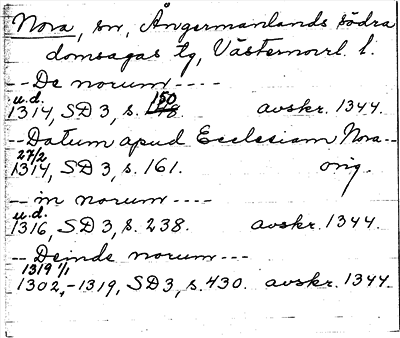 Nora, sn, Ångermanlands södra
domsagas tg, Västernorrl. l.
-- De norum ----
u.d. 150
1314, SD 3, s. 148. avskr. 1344.
-- Datum apud Ecclesiam Nora --
27/2
1314, SD 3, s. 161. orig.
-- in norum ----
u.d.
1316, SD 3, s. 238. avskr. 1344.
-- Deinde norum ---
1319 1/1
1302,-1319, SD 3, s. 430. avskr. 1344.